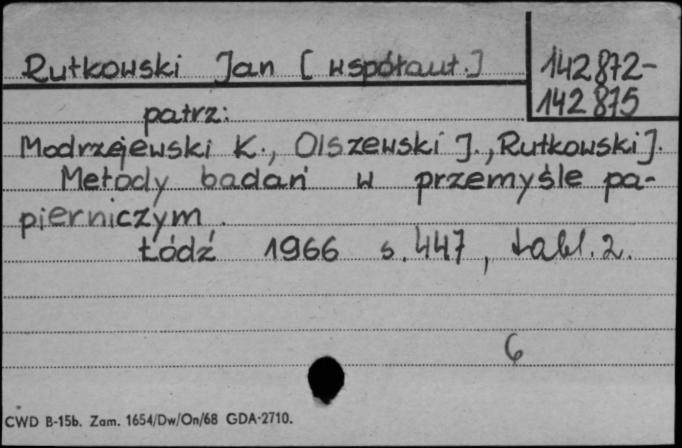 Rutkowski Jan [współaut.]
142872-
142875
patrz:
Modrzejewski K., Olszewski J., Rutkowski J.
Metody badań w przemyśle pa-
pierniczym.
Łódź 1966 s. 447, tabl. 2.
6
CWD B-15b. Zam. 1654/Dw/On/68 GDA-2710.